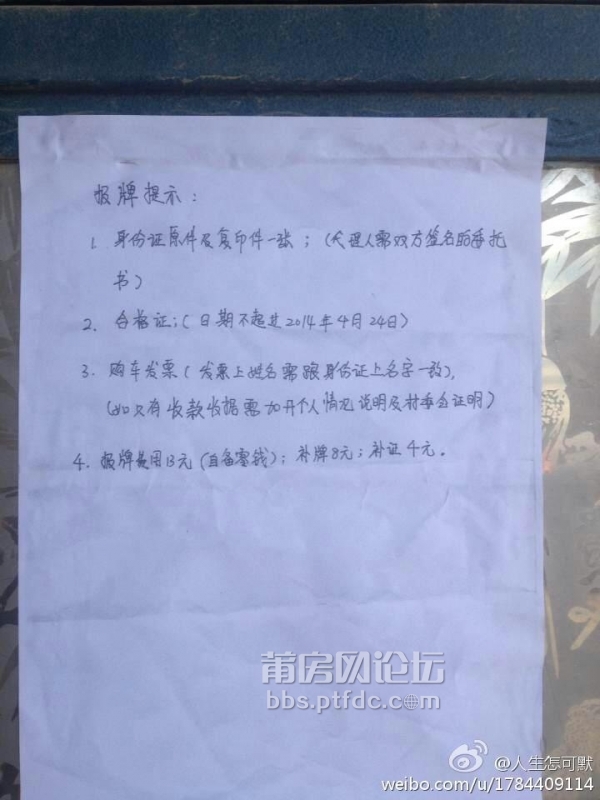 报牌提示：
1. 身份证原件及复印件一张；（代理人需双方签名的委托
书）
2. 合格证；（日期不超过2014年4月24日）
3. 购车发票（发票上姓名需跟身份证上名字一致），
（如只有收款收据需加开个人情况说明及村委会证明）
4. 报牌费用13元（自备零钱）；补牌8元；补证4元。
莆房网论坛
bbs.ptfdc.com
@人生怎可默
weibo.com/u/1784409114